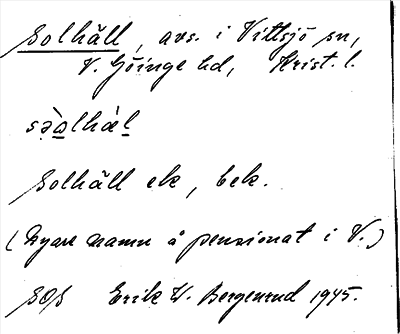 Solhäll, avs. i Vittsjö sn,
V. Göinge hd, Krist. l.
sə̀alhæ̀l
Solhäll ek, bek.
(Nyare namn å pensionat i V.)
SOS Erik W. Bergenrud 1945.